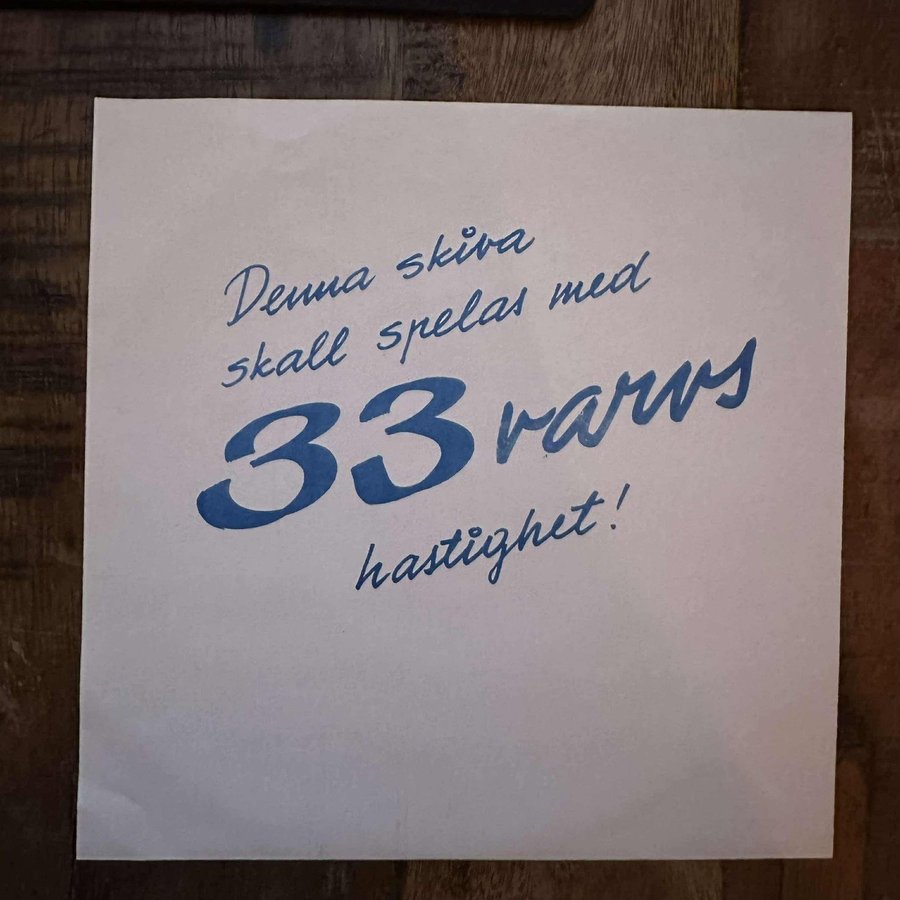 Denna skiva
skall spelas med
33 varvs
hastighet!